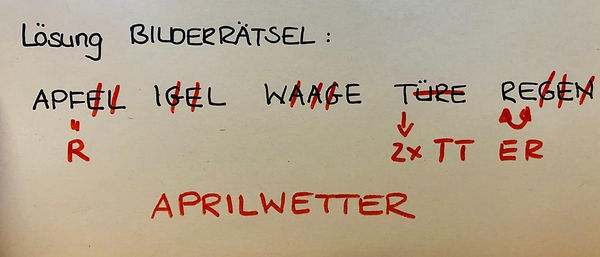 Lösung BILDERRÄTSEL:
APFEL IGEL WAAGE TÜRE REGEN
R 2x TT ER
APRILWETTER